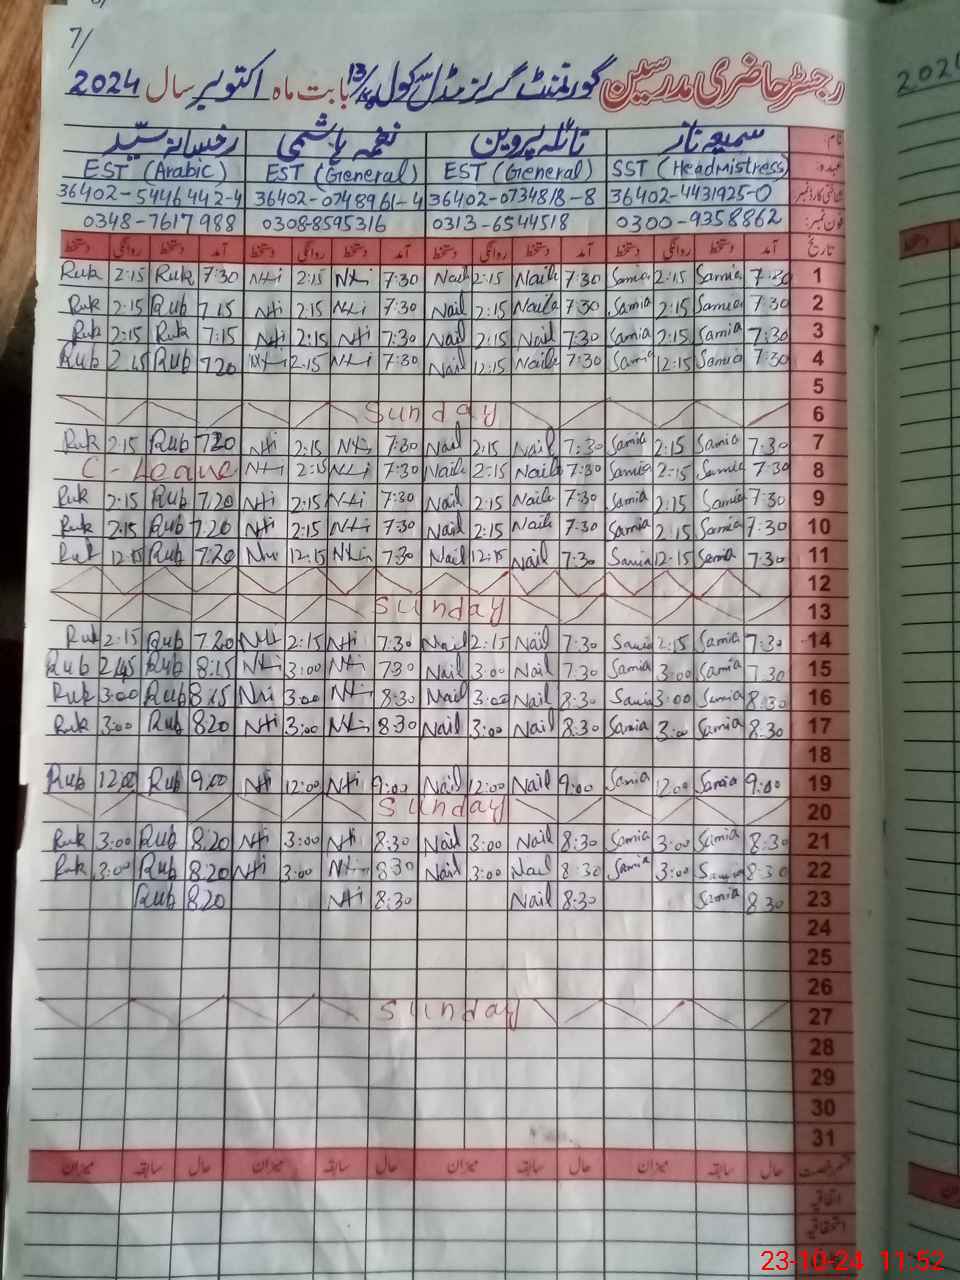 7/
رجسٹر حاضری مدرسین گورنمنٹ گرلز مڈل سکول 13/ بابت ماہ اکتوبر سال 2024
نام: سمیعہ ناز نائلہ پروین نغمہ ہاشمی رخسانہ سیّد
عہدہ SST (Headmistress) EST (General) EST (General) EST (Arabic)
شناختی کارڈ نمبر 36402-4431925-0 36402-0734818-8 36402-0748961-4 36402-5446442-4
فون نمبر: 0300-9358862 0313-6544518 0308-8595316 0348-7617988
تاریخ آمد دستخط روانگی دستخط آمد دستخط روانگی دستخط آمد دستخط روانگی دستخط آمد دستخط روانگی دستخط
Ruk 2:15 Ruk 7:30 Nhi 2:15 Nhi 7:30 Naile 2:15 Naile 7:30 Samia 2:15 Samia 7:30 1
Ruk 2:15 Rub 7:15 Nhi 2:15 Nhi 7:30 Nail 2:15 Naila 7:30 Samia 2:15 Samia 7:30 2
Ruk 2:15 Ruk 7:15 Nhi 2:15 Nhi 7:30 Nail 2:15 Nail 7:30 Samia 2:15 Samia 7:30 3
Rub 2:15 Rub 7:20 Nhi 2:15 Nhi 7:30 Nail 12:15 Naile 7:30 Samia 12:15 Samia 7:30 4
5
Sunday 6
Ruk 2:15 Rub 7:20 Nhi 2:15 Nhi 7:30 Nail 2:15 Nail 7:30 Samia 2:15 Samia 7:30 7
C-Leave Nhi 2:15 Nhi 7:30 Naile 2:15 Naile 7:30 Samia 2:15 Samia 7:30 8
Ruk 2:15 Rub 7:20 Nhi 2:15 Nhi 7:30 Nail 2:15 Naile 7:30 Samia 2:15 Samia 7:30 9
Ruk 2:15 Rub 7:20 Nhi 2:15 Nhi 7:30 Nail 2:15 Naile 7:30 Samia 2:15 Samia 7:30 10
Ruk 12:15 Rub 7:20 Nhi 12:15 Nhi 7:30 Nail 12:15 Nail 7:30 Samia 12:15 Samia 7:30 11
12
Sunday 13
Ruk 2:15 Rub 7:20 Nhi 2:15 Nhi 7:30 Nail 2:15 Nail 7:30 Samia 2:15 Samia 7:30 14
Rub 2:45 Rub 8:15 Nhi 3:00 Nhi 7:30 Nail 3:00 Nail 7:30 Samia 3:00 Samia 7:30 15
Ruk 3:00 Rub 8:15 Nhi 3:00 Nhi 8:30 Nail 3:00 Nail 8:30 Samia 3:00 Samia 8:30 16
Ruk 3:00 Rub 8:20 Nhi 3:00 Nhi 8:30 Nail 3:00 Nail 8:30 Samia 3:00 Samia 8:30 17
18
Rub 12:00 Rub 9:00 Nhi 12:00 Nhi 9:00 Nail 12:00 Nail 9:00 Samia 12:00 Samia 9:00 19
Sunday 20
Ruk 3:00 Rub 8:20 Nhi 3:00 Nhi 8:30 Nail 3:00 Nail 8:30 Samia 3:00 Samia 8:30 21
Ruk 3:00 Rub 8:20 Nhi 3:00 Nhi 8:30 Nail 3:00 Nail 8:30 Samia 3:00 Samia 8:30 22
Rub 8:20 Nhi 8:30 Nail 8:30 Samia 8:30 23
24
25
26
Sunday 27
28
29
30
31
حال سابقہ میزان حال سابقہ میزان حال سابقہ میزان حال سابقہ میزان
اتفاقیہ
استحقاقیہ
23-10-24 11:52